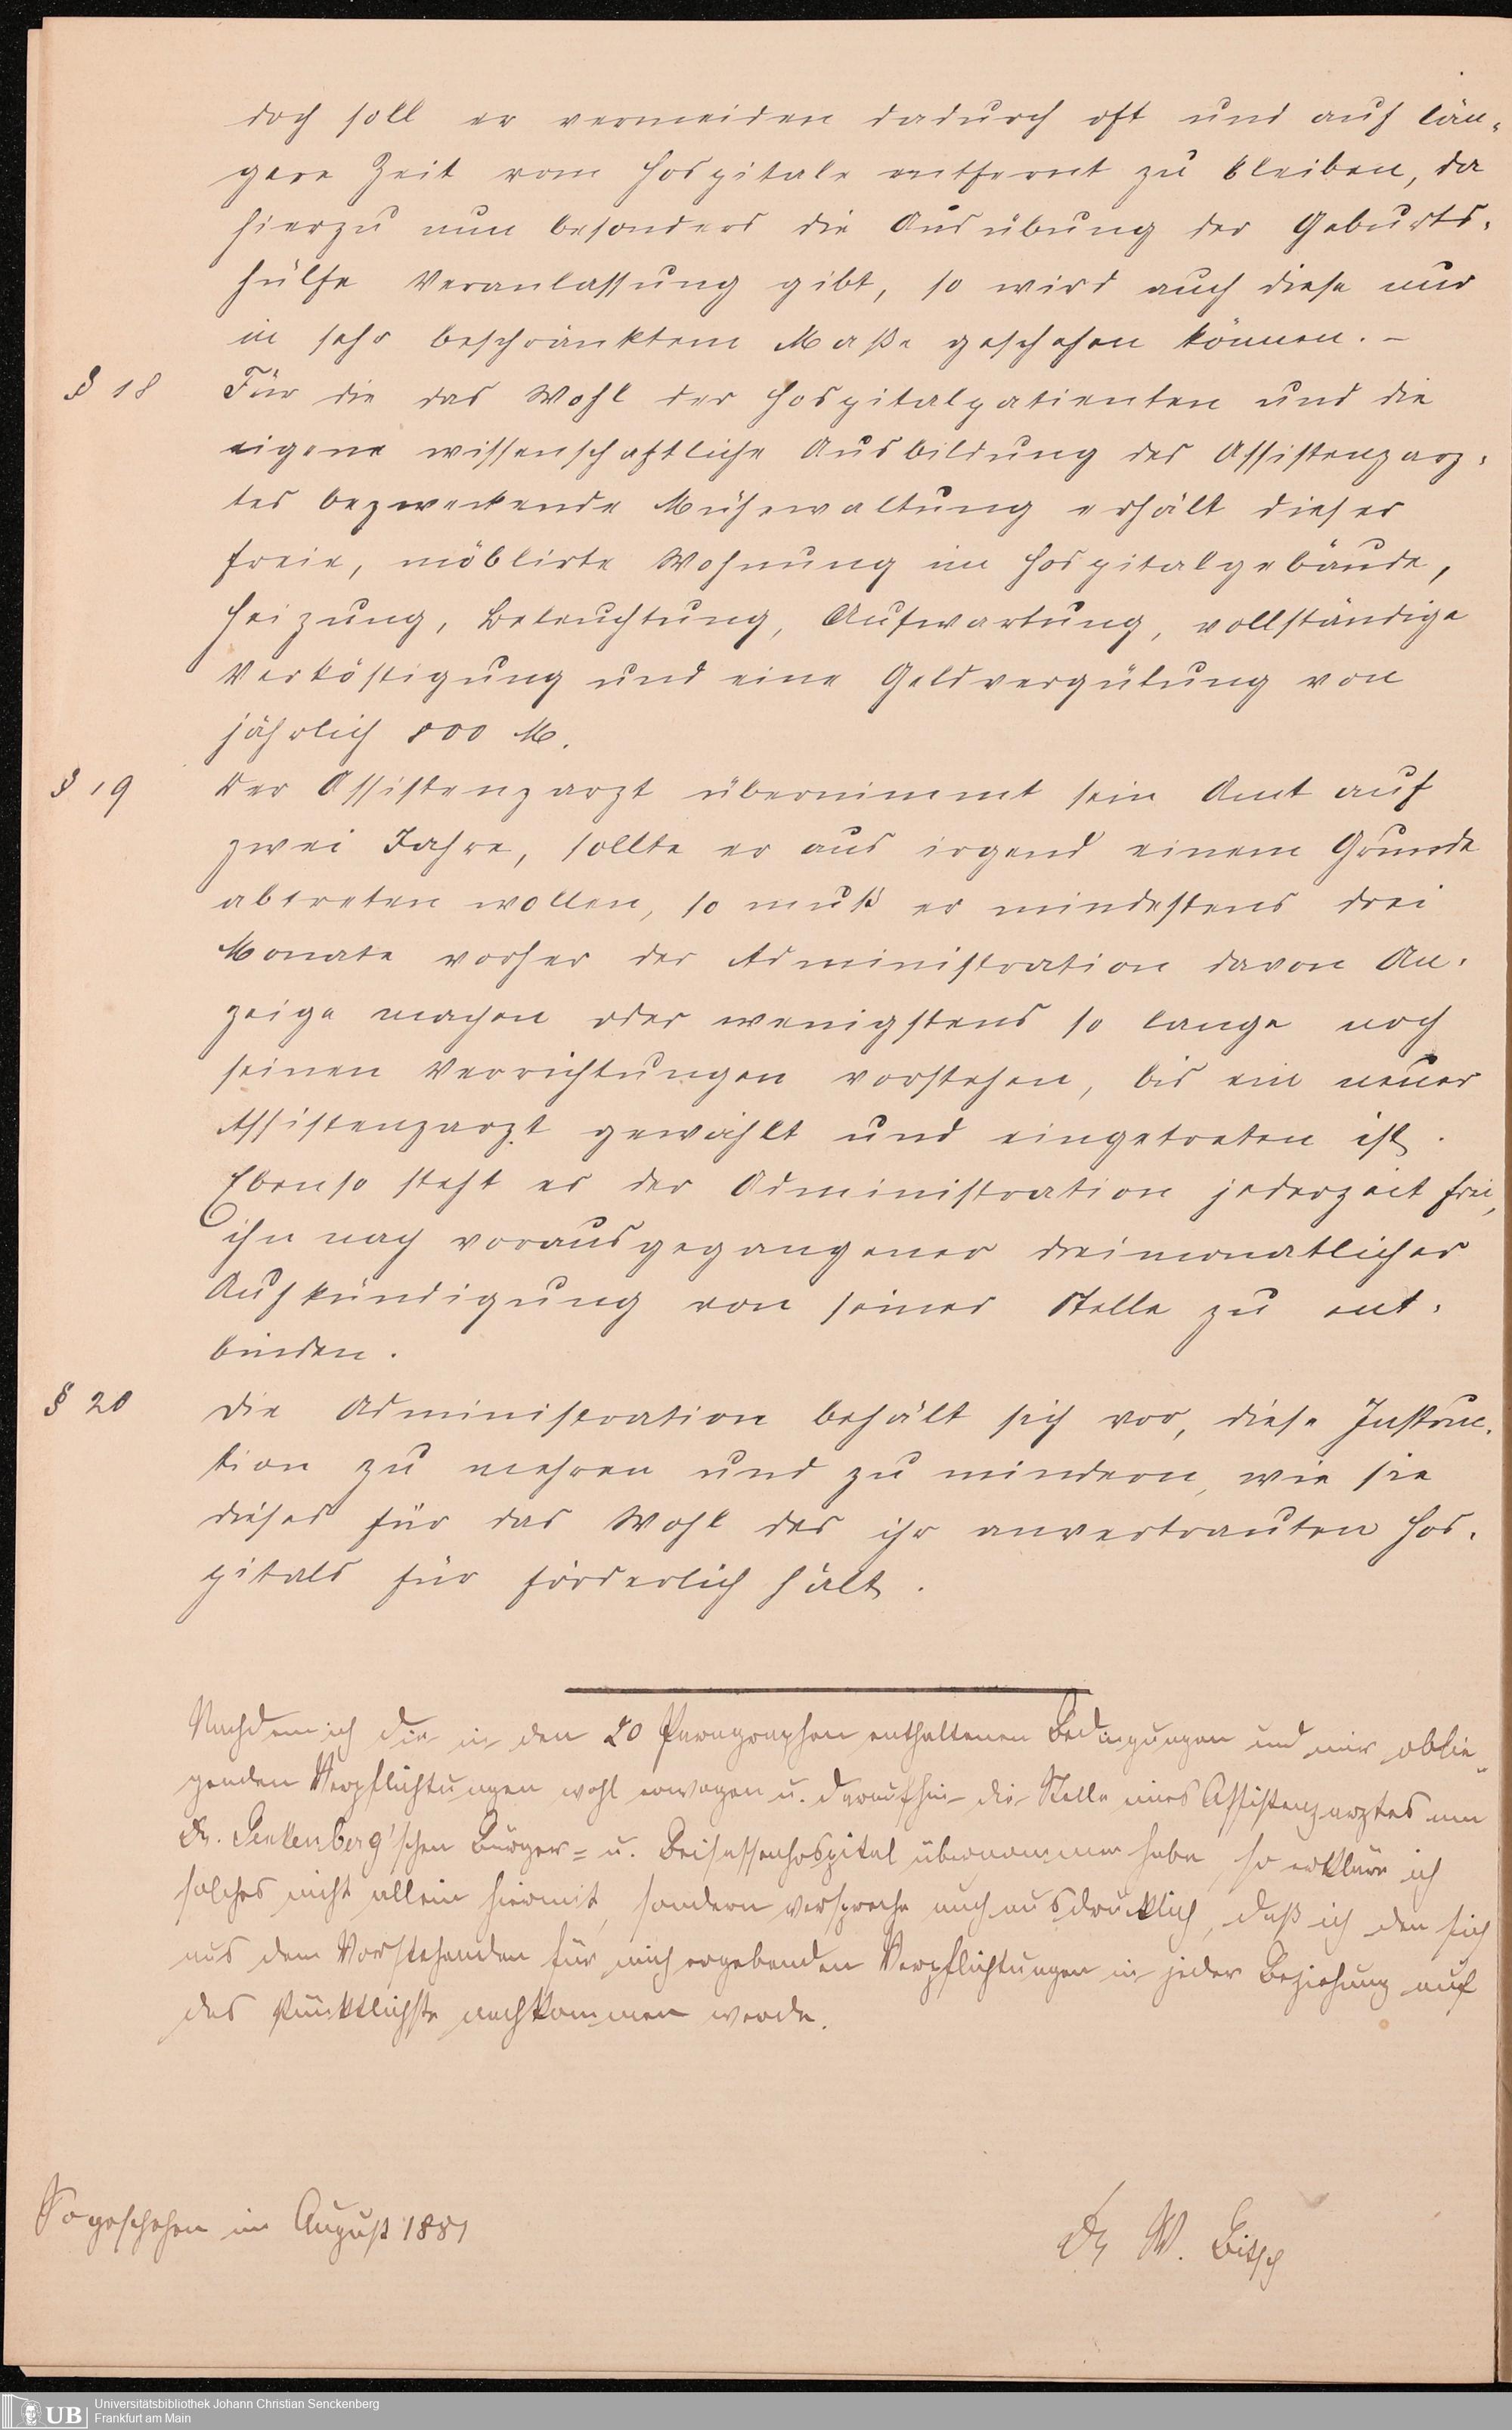 doch soll er vermeiden dadurch oft und auf län-
gere Zeit vom Hospitale entfernt zu bleiben, da
hierzu nun besonders die Ausübung der Geburts-
hülfe Veranlassung gibt, so wird auch diese nur
in sehr beschränktem Maße geschehen können. –
§ 18 Für die das Wohl der Hospitalpatienten und die
eigene wissenschaftliche Ausbildung des Assistenzarz-
tes bezweckende Mühewaltung erhält dieser
freie, möblirte Wohnung im Hospitalgebäude,
Heizung, Beleuchtung, Aufwartung, vollständige
Verköstigung und eine Geldvergütung von
jährlich 800 M.
§ 19 Der Assistenzarzt übernimmt sein Amt auf
zwei Jahre, sollte er aus irgend einem Grunde
abtreten wollen, so muß er mindestens drei
Monate vorher der Administration davon An-
zeige machen oder wenigstens so lange noch
seinen Verrichtungen vorstehen, bis ein neuer
Assistenzarzt gewählt und eingetreten ist.
Ebenso steht es der Administration jederzeit frei,
ihn nach vorausgegangener dreimonatlicher
Aufkündigung von seiner Stelle zu ent-
binden.
§ 20 Die Administration behält sich vor, diese Instruc-
tion zu mehren und zu mindern, wie sie
dieses für das Wohl des ihr anvertrauten Hos-
pitals für förderlich hält.
Nachdem ich die in den 20 Paragraphen enthaltenen Bedingungen und mir oblie-
genden Verpflichtungen wohl erwogen u. daraufhin die Stelle eines Assistenzarztes am
Dr. Senkenberg'schen Bürger- u. Beisassenhospital übernommen habe so erkläre ich
solches nicht allein hiermit, sondern verspreche auch ausdrücklich, daß ich den sich
aus dem Vorstehenden für mich ergebenden Verpflichtungen in jeder Beziehung auf
das Pünktlichste nachkommen werde.
So geschehen im August 1881
Dr W. Bitsch
Universitätsbibliothek Johann Christian Senckenberg
UB Frankfurt am Main